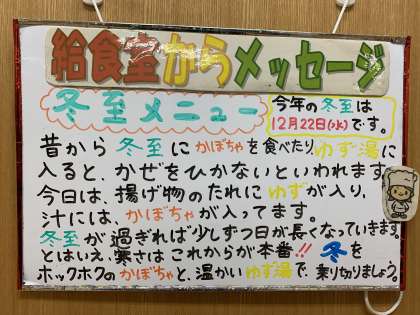 給食室からメッセージ
冬至メニュー
今年の冬至は
12月22日(水)です。
昔から 冬至に かぼちゃを食べたり、ゆず湯に
入ると、かぜをひかないといわれます。
今日は、揚げ物のたれに ゆずが入り、
汁には、かぼちゃが入ってます。
冬至が過ぎれば少しずつ日が長くなっていきます。
とはいえ、寒さはこれからが本番!! 冬を
ホックホクのかぼちゃと、温かいゆず湯で、乗り切りましょう。